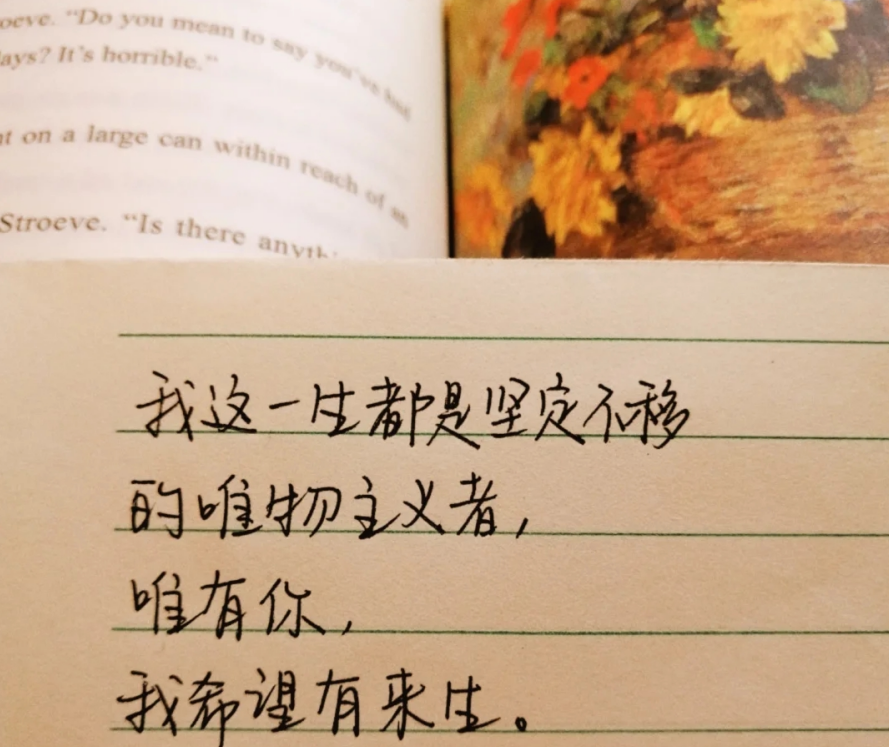 oeve. “Do you mean to say you've had
days? It's horrible.”
nt on a large can within reach of an
Stroeve. “Is there
我这一生都是坚定不移
的唯物主义者，
唯有你，
我希望有来生。